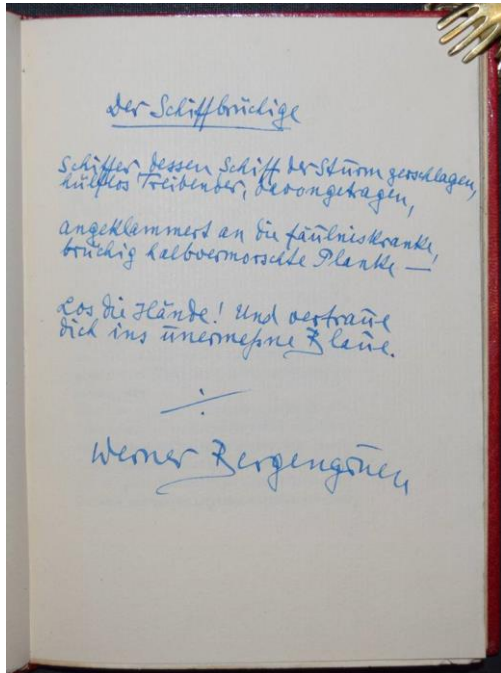 Der Schiffbrüchige
Schiffer, dessen Schiff der Sturm zerschlagen,
hülflos Treibender, davongetragen,
angeklammert an die fäulniskranke,
brüchig halbvermorschte Planke —
Los die Hände! Und vertraue
dich ins unermeßne Blaue.
Werner Bergengruen